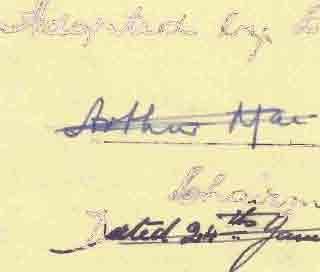 Adopted by
Arthur Mac
Chairm
Dated 24th Janu